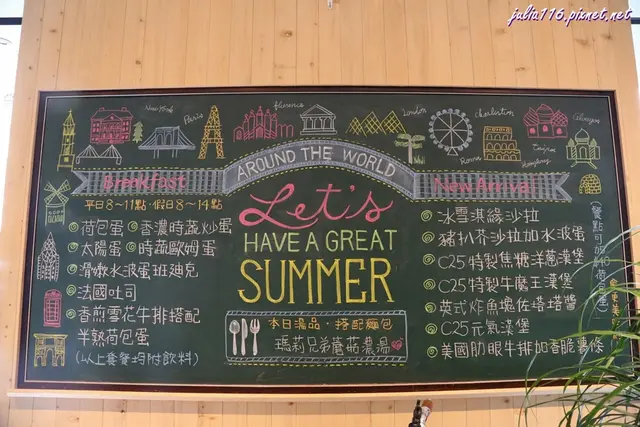 julia116.pixnet.net
New York
Paris
florence
London
Charleston
Rome
AROUND THE WORLD
Breakfast
平日8～11點・假日8～14點
荷包蛋 香濃時蔬炒蛋
太陽蛋 時蔬歐姆蛋
滑嫩水波蛋班迪克
法國吐司
香煎雪花牛排搭配
半熟荷包蛋
(以上套餐均附飲料)
Let's
HAVE A GREAT
SUMMER
本日湯品・搭配麵包
瑪莉兄弟蘑菇濃湯
New Arrival
冰雪淇綠沙拉
豬扒芥沙拉加水波蛋
C25特製焦糖洋蔥漢堡
C25特製牛魔王漢堡
英式炸魚塊佐塔塔醬
C25元氣漢堡
美國肋眼牛排加香脆薯條